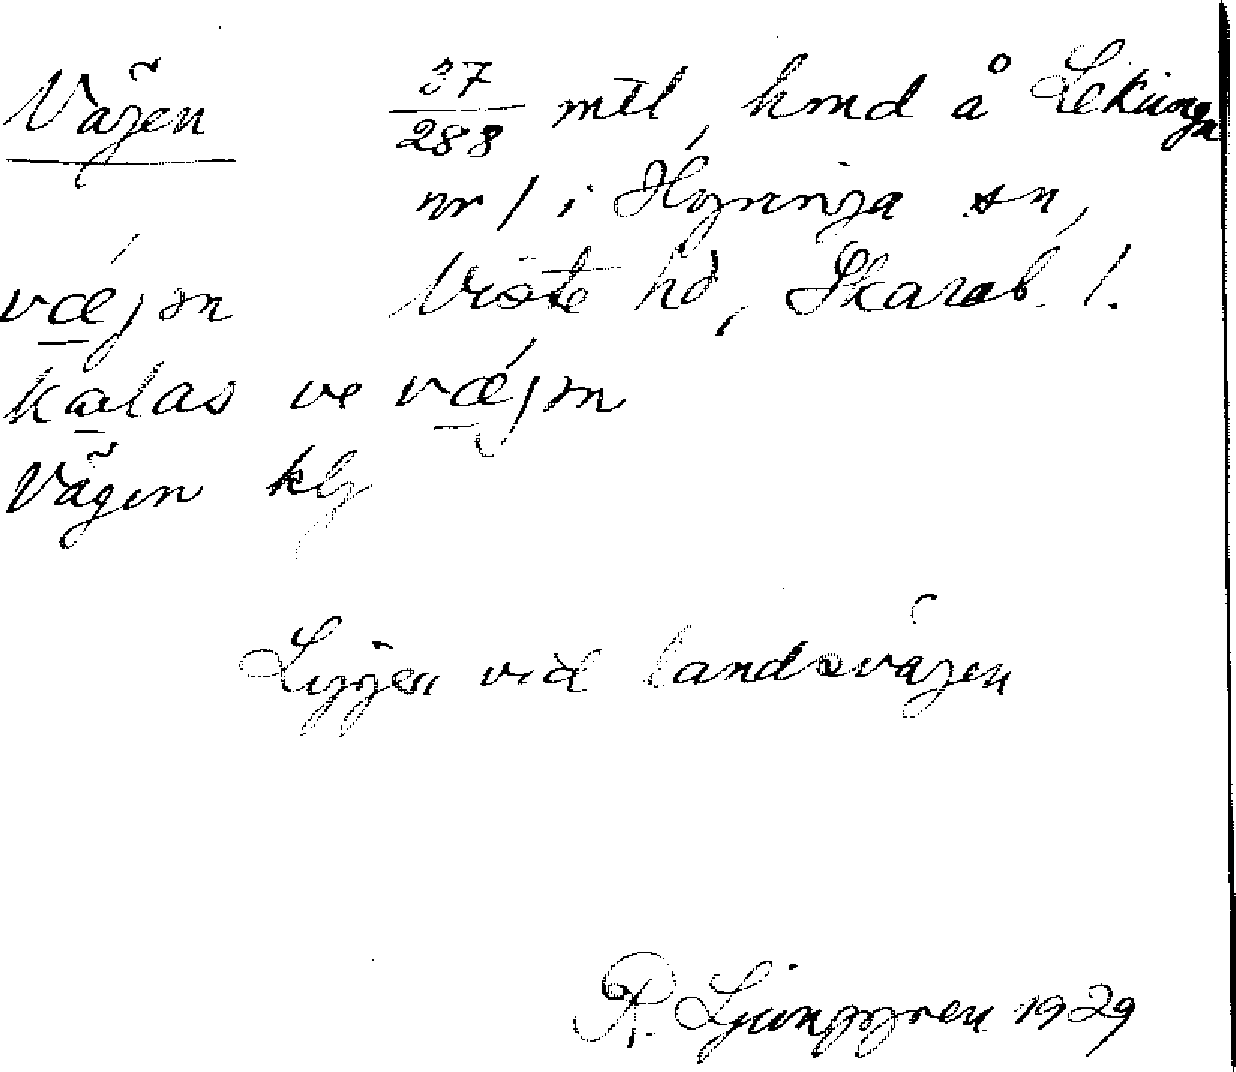 Vägen 37/288 mtl, hmd å Lekunga
nr 1 i Hyringa sn,
vǽjən Viste hd, Skarab. l.
kalas ve vǽjən
Vägen klg
Ligger vid landsvägen
R. Ljunggren 1929